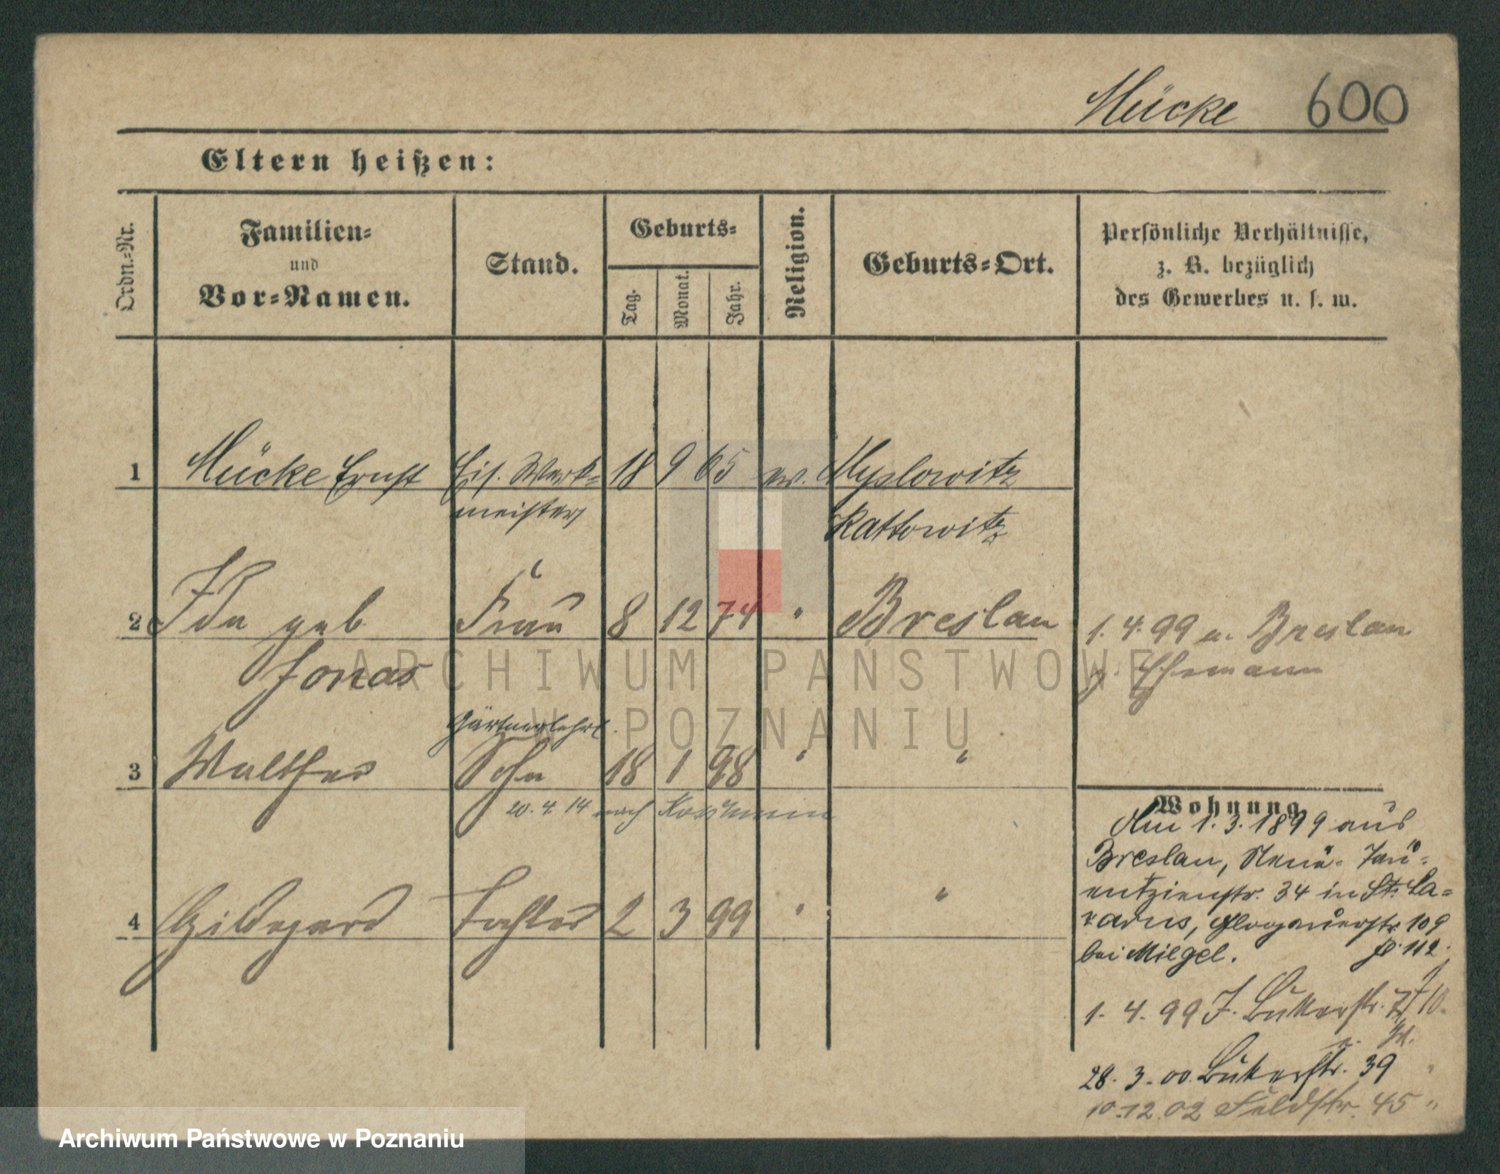 Mücke 600
Eltern heißen:
Ordn.-Nr.
Familien-
und
Vor-Namen.
Stand.
Geburts-
Tag.
Monat.
Jahr.
Religion.
Geburts-Ort.
Persönliche Verhältnisse,
z. B. bezüglich
des Gewerbes u. s. w.
1 Mücke Ernst Eis. Werk- 18 9 65 ev. Myslowitz
meister Kattowitz
2 Ida geb Frau 8 12 74 " Breslau 1. 4. 99 a. Breslau
Jonas z. Ehemann
Gärtnerlehrl.
3 Walther Sohn 18 1 98 " "
20. 4. 14 nach Koschmin
4 Hildegard Tochter 2 3 99 " "
Wohnung
Am 1. 3. 1899 aus
Breslau, Neue- Tau-
entzienstr. 34 in St. La-
zarus, Glogauerstr. 109
bei Miegel.
1. 4. 99 J. Bukerstr.
28. 3. 00 Bukerstr. 39 "
10. 12. 02 Feldstr. 45 "
ARCHIWUM PAŃSTWOWE
W POZNANIU
Archiwum Państwowe w Poznaniu